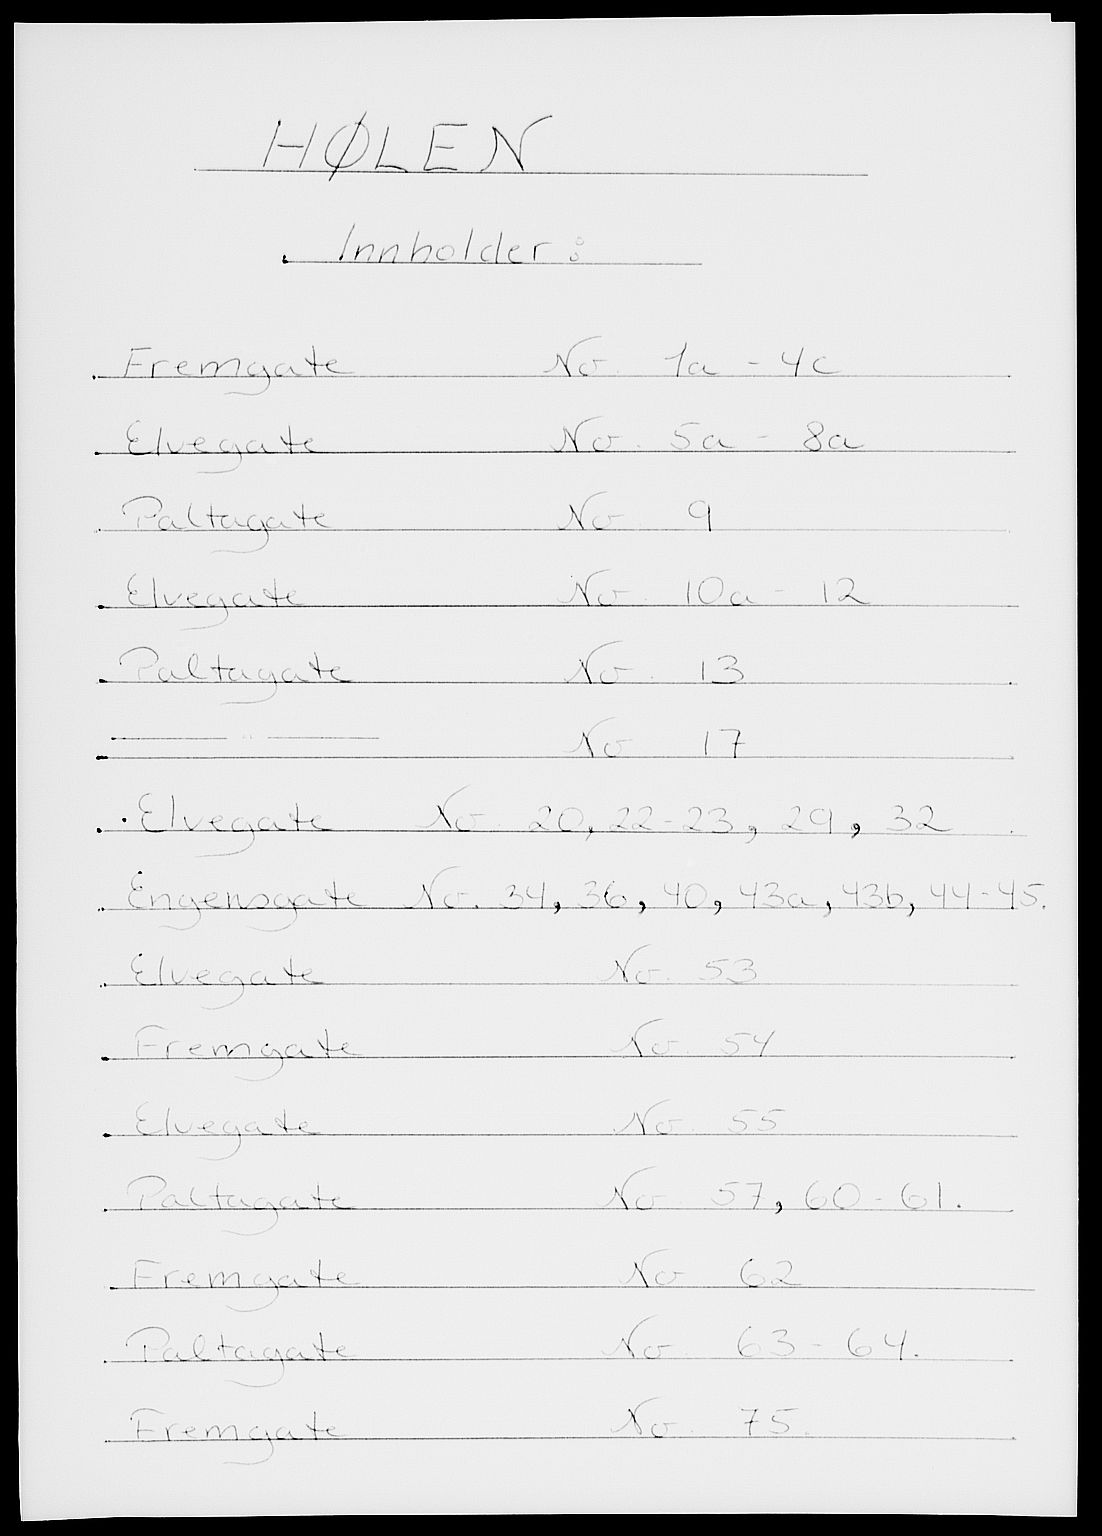 HØLEN
Innholder:
Fremgate No. 1a - 4c
Elvegate No. 5a - 8a
Paltagate No. 9
Elvegate No. 10a - 12
Paltagate No. 13
— " — No 17
Elvegate No. 20, 22-23, 29, 32
Engensgate No. 34, 36, 40, 43a, 43b, 44-45.
Elvegate No. 53
Fremgate No. 54
Elvegate No. 55
Paltagate No 57, 60-61.
Fremgate No 62
Paltagate No. 63-64.
Fremgate No. 75.